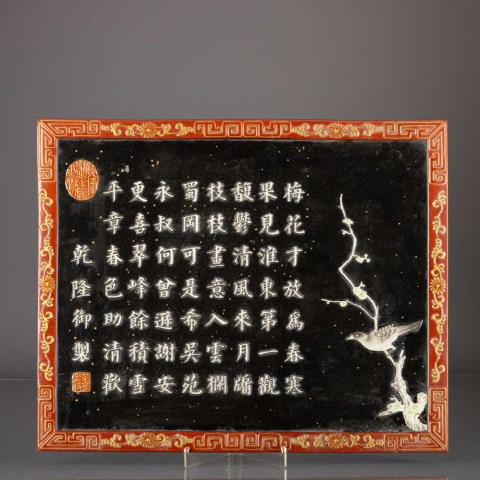 梅花才放為春寒
果見淮東第一觀
馥鬱清風來月牖
枝枝畫意入雲欄
蜀岡可是希吳苑
永叔何曾遜謝安
更喜翠峰餘積雪
平章春色助清歡
乾隆御製